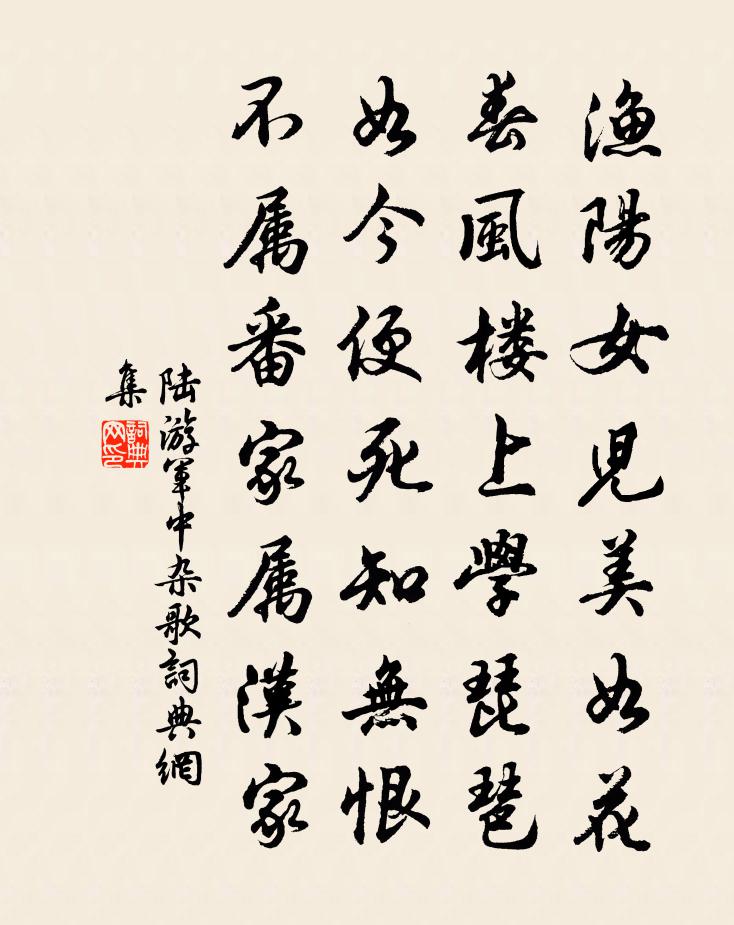 漁陽女児美如花
春風楼上學琵琶
如今便死知無恨
不属番家属漢家
陆游軍中杂歌詞典網
集
詞典
网印